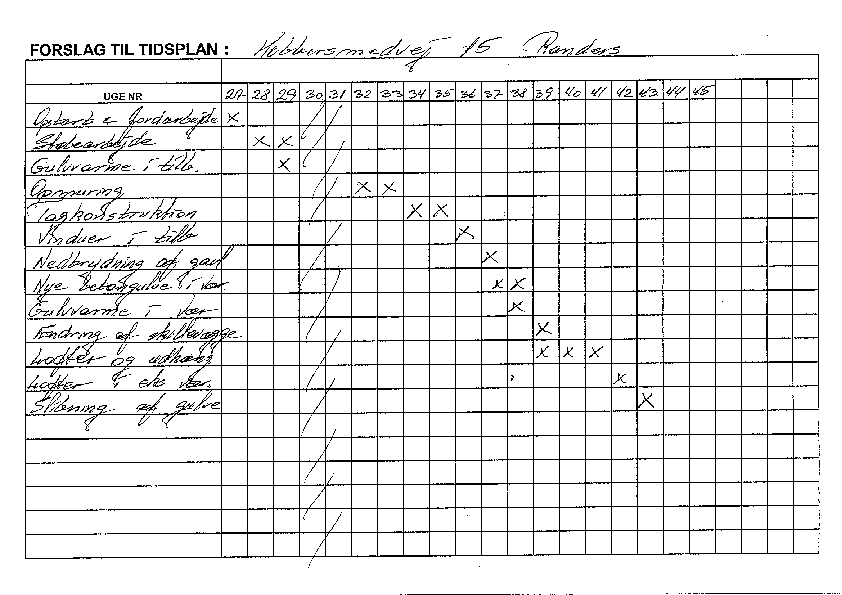 FORSLAG TIL TIDSPLAN : Kobbersmedvej 15 Randers
UGE NR 27 28 29 30 31 32 33 34 35 36 37 38 39 40 41 42 43 44 45
Opstart & Jordarbejde X
Støbearbejde X X
Gulvvarme i tilb. X
Opmuring X X
Tagkonstruktion X X
Vinduer i tilb X
Nedbrydning af gavl X
Nye betongulve i vær. X X
Gulvvarme i vær X
Ændring af skillevægge X
Lofter og udhæng X X X
Lofter i eks vær. X
Slibning af gulve X